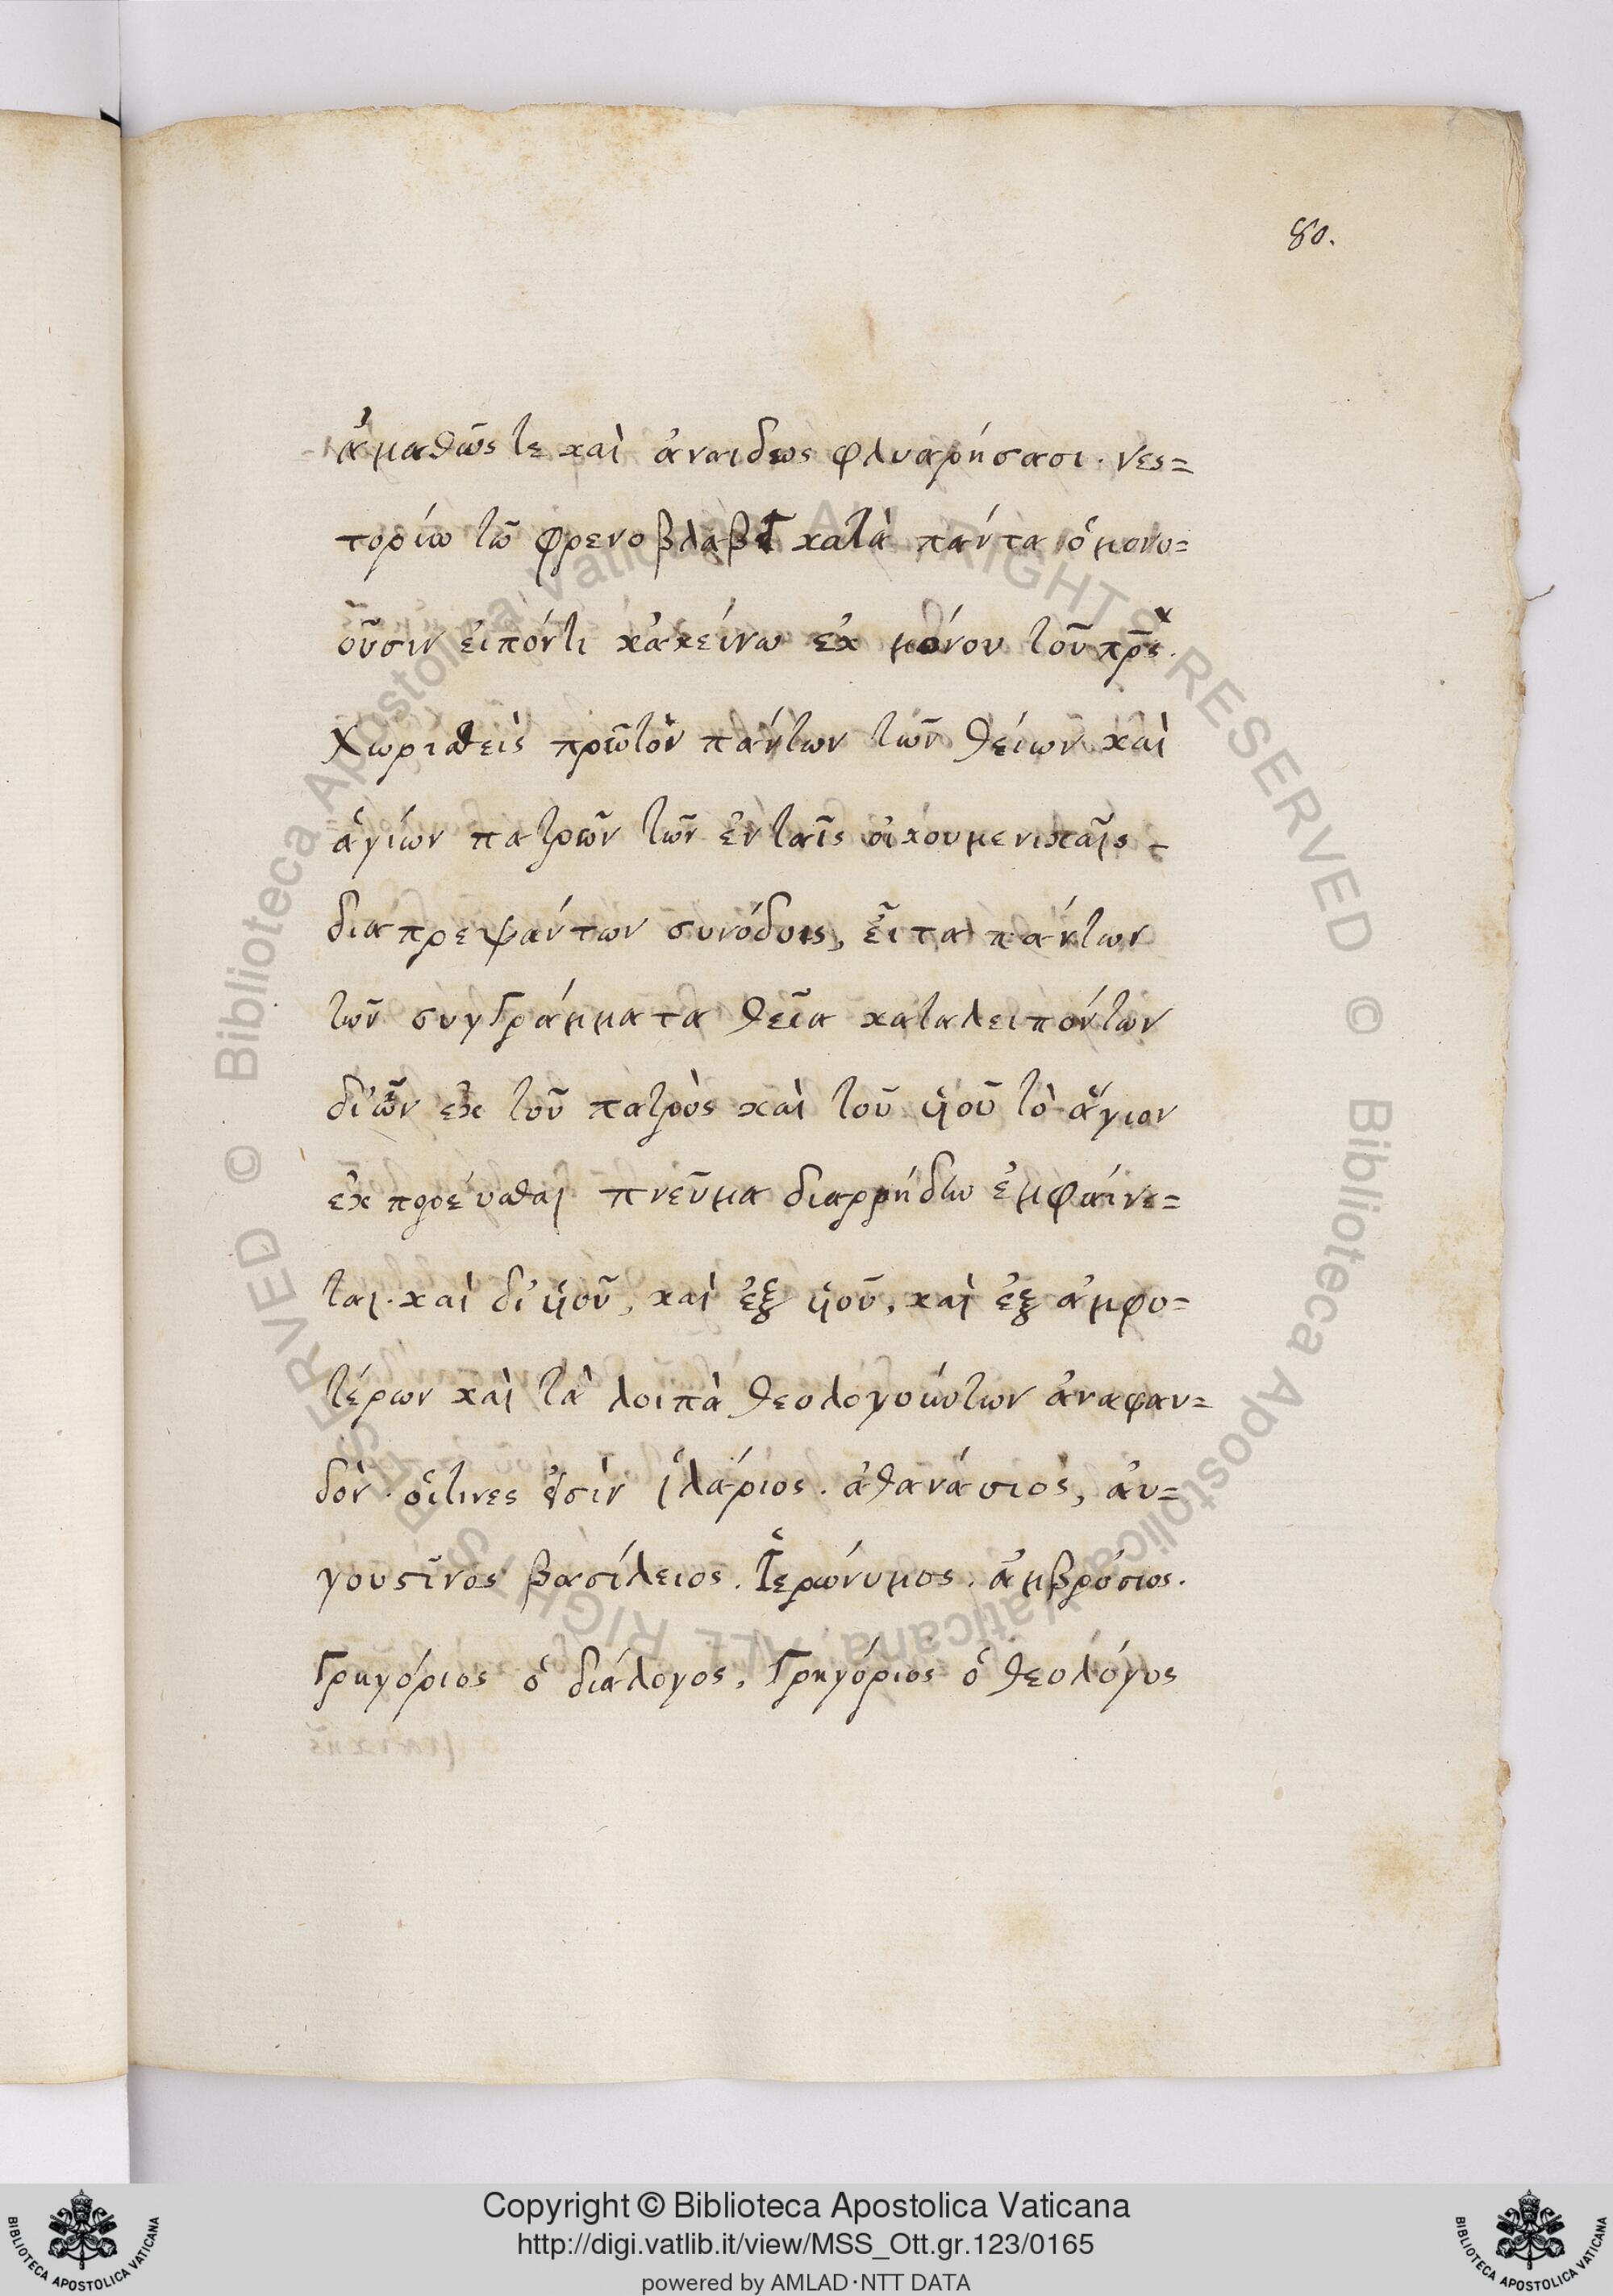 80.
ἀμαθῶς τε καὶ ἀναιδως φλυαρήσασι. νεσ=
τορίω τῶ φρενοβλαβεῖ κατὰ πάντα ὁμονο=
οῦσιν ἐιπόντι κἀκείνω ἐκ μόνου τοῦ πρ̅ς.
χωρισθεὶς πρῶτον πάντων τῶν θείων καὶ
ἁγίων πατρῶν τῶν ἐν ταῖς οἰκουμενικαῖς
διαπρεψάντων συνόδοις, εἶτα πάντων
τῶν συγγράμματα θεῖα καταλειπόντων
δι' ὧν ἐκ τοῦ πατρὸς καὶ τοῦ ὑιοῦ τὸ ἅγιον
ἐκπορεύεσθαι πνεῦμα διαρρήδην ἐμφαίνε=
ται. καὶ δι' ὑιοῦ, καὶ ἐξ ὑιοῦ, καὶ ἐξ ἀμφο=
τέρων καὶ τὰ λοιπὰ θεολογούντων ἀναφαν=
δὸν. οἵτινες εἰσὶν ἱλάριος. ἀθανάσιος, ἀυ=
γουστῖνος βασίλειος. Ἱερώνυμος. ἀμβρόσιος.
Γρηγόριος ὁ διάλογος, Γρηγόριος ὁ θεολόγος
Copyright © Biblioteca Apostolica Vaticana
http://digi.vatlib.it/view/MSS_Ott.gr.123/0165
powered by AMLAD·NTT DATA